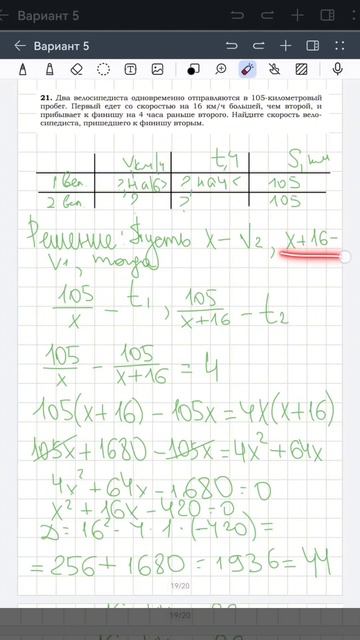 Вариант 5
Вариант 5
21. Два велосипедиста одновременно отправляются в 105-километровый
пробег. Первый едет со скоростью на 16 км/ч большей, чем второй, и
прибывает к финишу на 4 часа раньше второго. Найдите скорость вело-
сипедиста, пришедшего к финишу вторым.
V км/ч t, ч S, км
1 вел ?, на 16> ?, на 4 < 105
2 вел ? ? 105
Решение: Пусть x – V2, x+16 –
V1, тогда
105/x – t1, 105/x+16 – t2
105/x – 105/x+16 = 4
105(x+16) – 105x = 4x(x+16)
105x + 1680 – 105x = 4x² + 64x
4x² + 64x – 1680 = 0
x² + 16x – 420 = 0
D = 16² – 4 · 1 · (–420) =
= 256 + 1680 = 1936 = 44
19/20
19/20